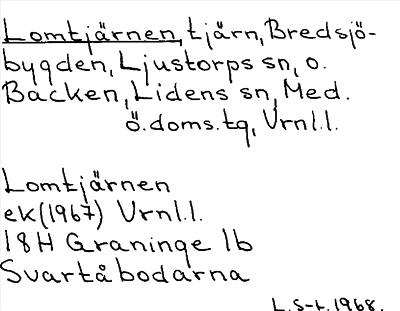 Lomtjärnen, tjärn, Bredsjö-
bygden, Ljustorps sn, o.
Backen, Lidens sn, Med.
ö. doms.tg, Vrnl.l.
Lomtjärnen
ek(1967) Vrnl.l.
18H Graninge 1b
Svartåbodarna
L.S-t. 1968.